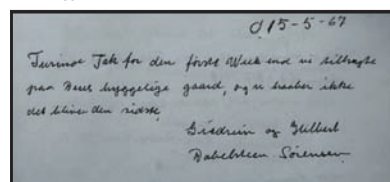 d 15-5-67
Tusinde Tak for den første Week end vi tilbragte
paa Deres hyggelige gaard, og vi haaber ikke
det bliver den sidste
og Gilbert
Sørensen